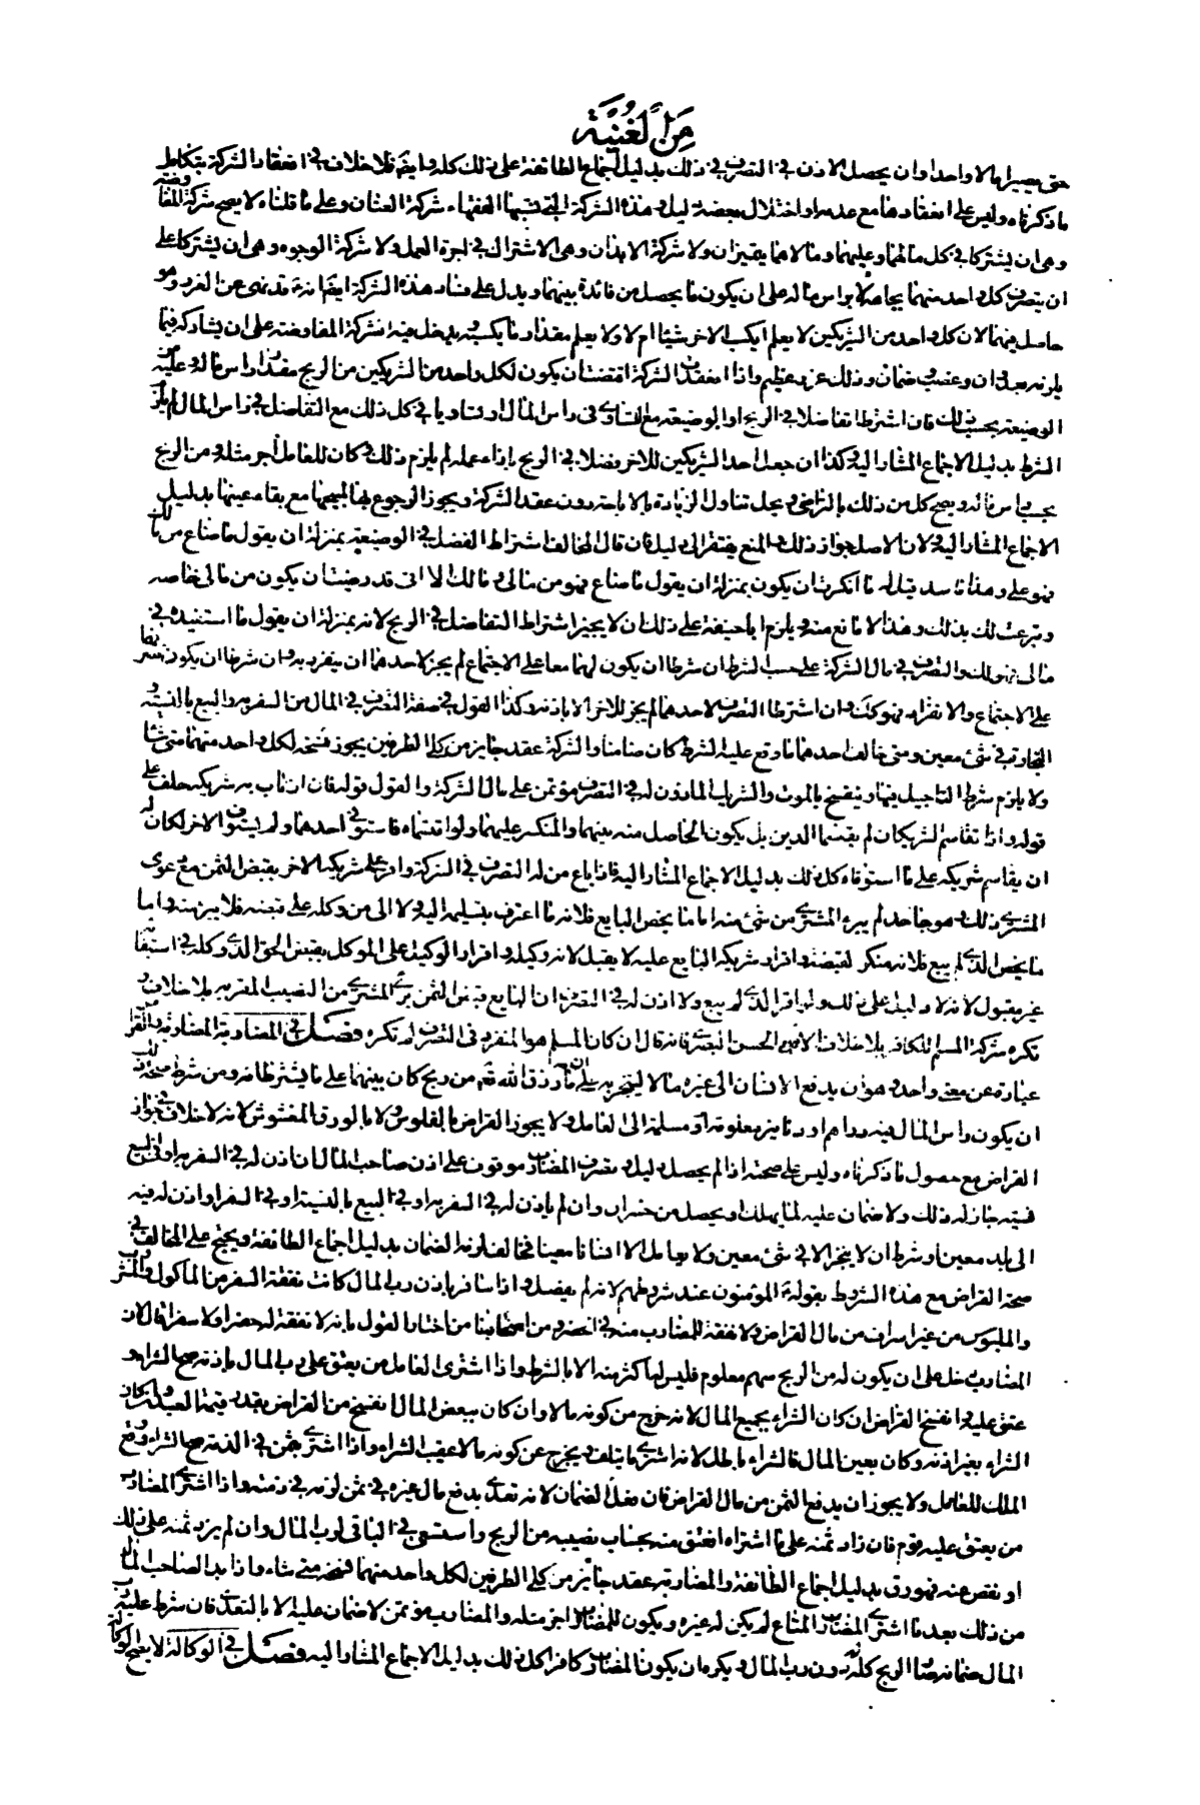 من الغنية
حتى يصيرا مالا واحدا وان يحصل الاذن في التصرف في ذلك بدليل اجماع الطائفة على ذلك كله وايضا فلا خلاف في انعقاد الشركة بتكامل
ما ذكرناه وليس على انعقادها مع عدمه او اختلال بعضه دليل وهذه الشركة التي تسميها الفقهاء شركة العنان وعلى ما قلناه لا يصح شركة المفاوضة
وهى ان يشتركا في كل مالهما وعليهما ومالاهما متميزان ولا شركة الابدان وهى الاشتراك في اجرة العمل ولا شركة الوجوه وهى ان يشتركا على
ان يتصرف كل واحد منهما بجاهه لا براس ماله على ان يكون ما يحصل من فائدة بينهما ويدل على فساد هذه الشركة ايضا نهيه عن الغرر وهو
حاصل فيهما لان كل واحد من الشريكين لا يعلم ايكسب الاخر شيئا ام لا ولا يعلم مقدار ما يكسبه ويدخل في شركة المفاوضة على ان يشاركه فيما
يلزمه بعدوان وغصب وضمان وذلك غرر عظيم واذا انعقدت الشركة اقتضت ان يكون لكل واحد من الشريكين من الربح مقدار راس ماله وعليه من
الوضيعة بحسب ذلك فان اشترطا تفاضلا في الربح او الوضيعة مع التساوى في راس المال او تساويا في كل ذلك مع التفاضل في راس المال لم يلزم
الشرط بدليل الاجماع المشار اليه وكذا ان جعل احد الشريكين للاخر فضلا في الربح بازاء عمله لم يلزم ذلك وكان للعامل اجر مثله ومن الربح
بحسب راس ماله ويصح كل من ذلك بالتراضى ويحل تناول الزيادة بالاباحة دون عقد الشركة ويجوز الرجوع بها لمبيحها مع بقاء عينها بدليل
الاجماع المشار اليه ولان الاصل جواز ذلك والمنع يفتقر الى دليل فان قال المخالف اشتراط الفضل في الوضيعة بمنزلة ان يقول ما ضاع من مالك
فهو على وهذا فاسد قيل له ما انكرت ان يكون بمنزلة ان يقول ما ضاع فهو من مالى ومالك الا انى قد رضيت ان يكون من مالى خاصة
وتبرعت لك بذلك وهذا لا مانع منه ويلزم ابا حنيفة على ذلك ان لا يجيز اشتراط التفاضل في الربح لانه بمنزلة ان يقول ما استفيده في
مالى فهو لك والتصرف في مال الشركة على حسب الشرط ان شرطا ان يكون لهما معا على الاجتماع لم يجز لاحدهما ان ينفرد به وان شرطا ان يكون تصرفهما
على الاجتماع والانفراد فهو كذلك وان اشترطا التصرف لاحدهما لم يجز للاخر الا باذنه وكذا القول في صفة التصرف في المال من السفر به والبيع بالنسيئة و
التجارة في شئ معين ومتى خالف احدهما ما وقع عليه الشرط كان ضامنا والشركة عقد جايز من كلى الطرفين يجوز فسخه لكل واحد منهما متى شاء
ولا يلزم شرط التاجيل فيها وينفسخ بالموت والشريك الماذون له في التصرف مؤتمن على مال الشركة والقول قوله فان ارتاب به شريكه حلف على
قوله واذا تقاسم الشريكان لم يقسما الدين بل يكون الحاصل منه بينهما والمنكسر عليهما ولو اقتسماه فاستوفى احدهما ولم يستوف الاخر لكان له
ان يقاسم شريكه على ما استوفاه كل ذلك بدليل الاجماع المشار اليه فاذا باع من له التصرف في الشركة واقر على شريكه الاخر بقبض الثمن مع دعوى
المشترى ذلك وهو جاحد لم يبرء المشترى من شئ منه اما ما يخص البايع فلانه ما اعترف بتسليمه اليه ولا الى من وكله على قبضه فلا يبرء منه واما
ما يخص الذى لم يبع فلانه منكر لقبضه واقرار شريكه البايع عليه لا يقبل لانه وكيله واقرار الوكيل على الموكل بقبض الحق الذى وكله في استيفائه
غير مقبول لانه لا دليل على ذلك ولو اقر الذى لم يبع ولا اذن له في التصرف ان البايع قبض الثمن برئ المشترى من نصيب المقر به بلا خلاف و
تكره شركة المسلم للكافر بلا خلاف الا من الحسن البصرى فانه قال ان كان المسلم هو المنفرد في التصرف لم تكره فصل في المضاربة المضاربة والقراض
عبارة عن معنى واحد وهو ان يدفع الانسان الى غيره مالا ليتجر به على ان ما رزق الله تعم من ربح كان بينهما على ما يشترطانه ومن شرط صحة ذلك
ان يكون راس المال فيه دراهم او دنانير معلومة مسلمة الى العامل ولا يجوز القراض بالفلوس ولا بالورق المغشوش لانه لا خلاف في جواز
القراض مع حصول ما ذكرناه وليس على صحته اذا لم يحصل دليل وتصرف المضارب موقوف على اذن صاحب المال ان اذن له في السفر به او في البيع
نسية جاز له ذلك ولا ضمان عليه لما يهلك او يحصل من خسران وان لم ياذن له في السفر به او في البيع بالنسية او في السفر او اذن له فيه
الى بلد معين او شرط ان لا يتجر الا في شئ معين ولا يعامل الا انسانا معينا فخالف لزمه الضمان بدليل اجماع الطائفة ويحتج على المخالف في
صحة القراض مع هذه الشروط بقوله المؤمنون عند شروطهم لانه لم يفصل واذا سافر باذن رب المال كانت نفقة السفر من الماكول والمشروب
والملبوس من غير اسراف من مال القراض ولا نفقة للمضارب منه في الحضر ومن اصحابنا من اختار القول بانه لا نفقة له حضرا ولا سفرا قال لان
المضارب دخل على ان يكون له من الربح سهم معلوم فليس له اكثر منه الا بالشرط واذا اشترى العامل من يعتق على رب المال باذنه صح الشراء و
عتق عليه وانفسخ القراض ان كان الشراء بجميع المال لانه خرج من كونه مالا وان كان ببعض المال انفسخ من القراض بقدر قيمة العبد وان كان
الشراء بغير اذنه وكان بعين المال فالشراء باطل لانه اشترى ما يتلف ويخرج عن كونه مالا عقيب الشراء واذا اشترى بثمن في الذمة صح الشراء ووقع
الملك للعامل ولا يجوز ان يدفع الثمن من مال القراض فان فعل لزمه الضمان لانه تعدى بدفع مال غيره في ثمن لزمه في ذمته واذا اشترى المضارب
من يعتق عليه قوم فان زاد ثمنه على ما اشتراه انعتق منه بحساب نصيبه من الربح واستسعى في الباقى لرب المال وان لم يزد ثمنه على ذلك
او نقص عنه فهو رق بدليل اجماع الطائفة والمضاربة عقد جائز من كلى الطرفين لكل واحد منهما فسخه متى شاء واذا بدا لصاحب المال
من ذلك بعد ما اشترى المضارب المتاع لم يكن له غيره ويكون للمضارب اجر مثله والمضارب مؤتمن لا ضمان عليه الا بالتعدى فان شرط عليه رب
المال ضمانه صار الربح كله له دون رب المال ويكره ان يكون المضارب كافرا كل ذلك بدليل الاجماع المشار اليه فصل في الوكالة لا يصح الوكالة